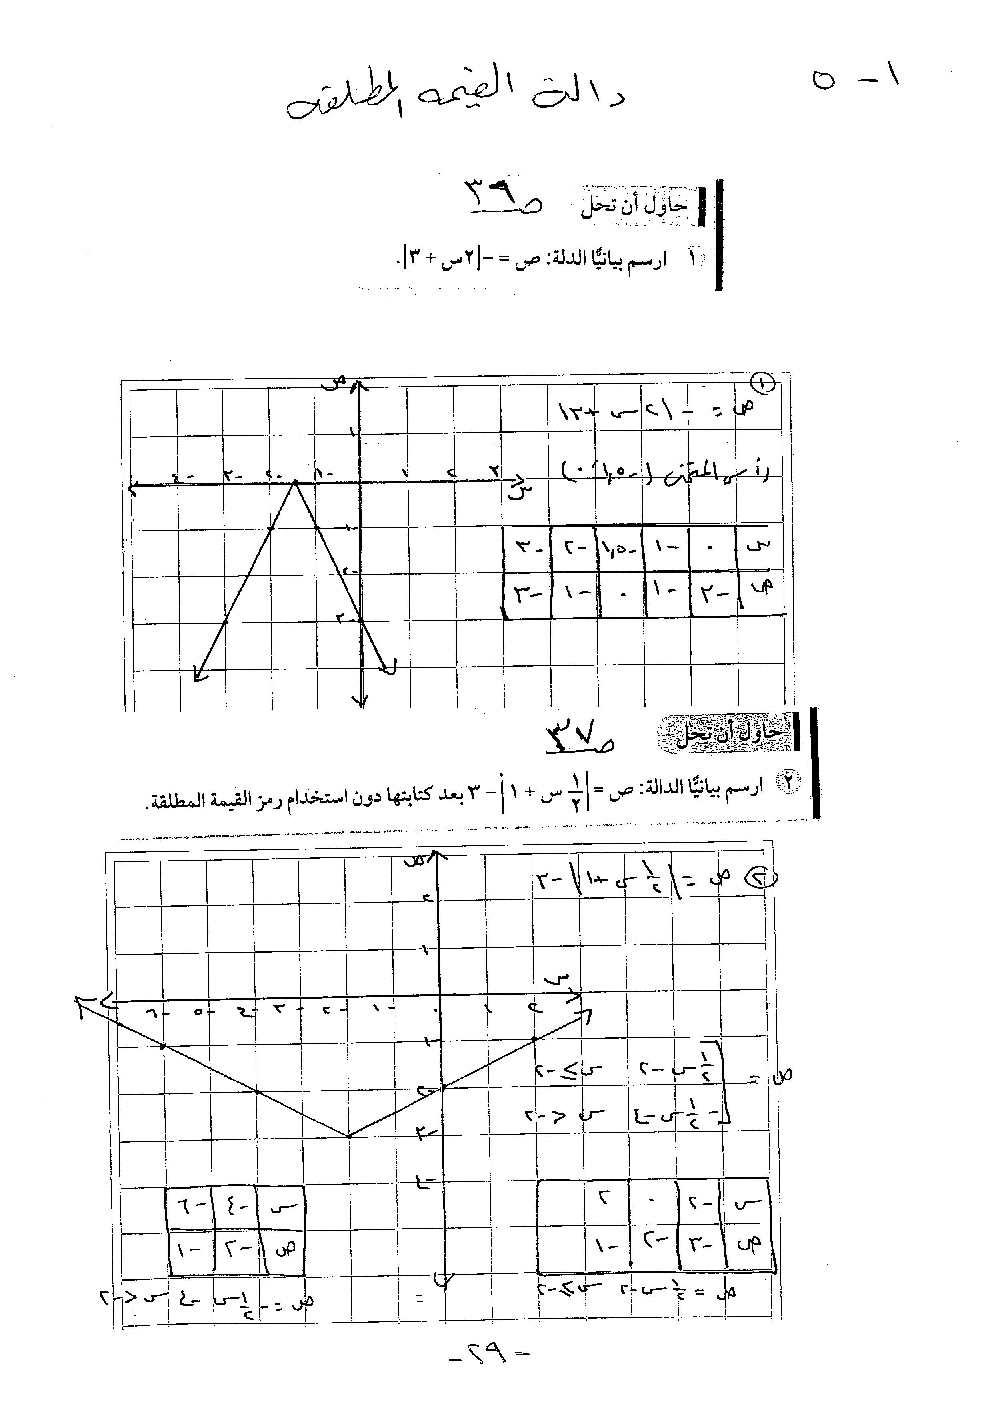 ١ - ٥
دالة القيمه المطلقه
حاول أن تحل ص ٣٩
١ ارسم بيانيًّا الدلة: ص = -|٢س + ٣|.
١
ص = -|٢س + ٣|
رأس المنحنى (-١,٥ ، ٠)
س ٠ -١ -١,٥ -٢ -٣
ص -٣ -١ ٠ -١ -٣
ص
١
-٤ -٣ -٢ -١ ١ ٢ ٣
س
-١
-٢
-٣
حاول أن تحل ص ٣٧
٢ ارسم بيانيًّا الدالة: ص = |١/٢ س + ١| - ٣ بعد كتابتها دون استخدام رمز القيمة المطلقة.
٢ ص = |١/٢ س + ١| - ٣
ص
٢
١
س
-٦ -٥ -٤ -٣ -٢ -١ ٠ ١ ٢
-١
-٢
-٣
-٤
ص =
١/٢ س - ٢ س ≥ -٢
-١/٢ س - ٤ س < -٢
س -٢ ٠ ٢
ص -٣ -٢ -١
ص = ١/٢ س - ٢ س ≥ -٢
س -٤ -٦
ص -٢ -١
ص = -١/٢ س - ٤ س < -٢
=
- ٢٩ -